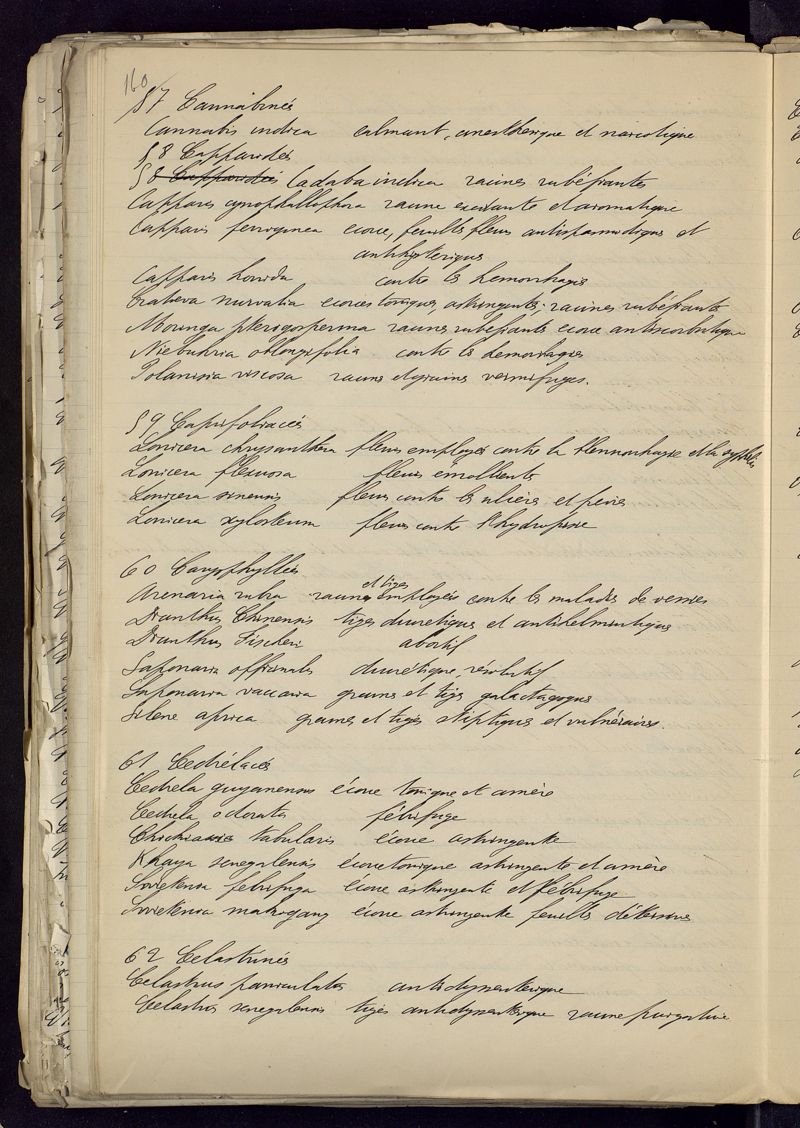 160
57 Cannabinés
Cannabis indica calmant, anesthésique et narcotique
58 Capparidés
58 Capparidés Cadaba indica racines rubéfiantes
Capparis cynophallophora racine excitante et aromatique
Capparis ferruginea écorce, feuilles fleurs antispasmodiques et
antihystériques
Capparis horrida contre les hemorrhagies
Crataeva nurvalia ecorces toniques, astringentes; racines rubéfiantes
Moringa pterigosperma racines rubéfiantes ecorce antiscorbutique
Niebuhria oblongifolia contre les hemorhagies
Polanisia viscosa racines et graines vermifuges.
59 Caprifoliacés
Lonicera chrysanthera fleurs employées contre la blennorrhagie et la syphilis
Lonicera flexuosa fleurs émollientes
Lonicera sinensis fleurs contre les ulcères et fievres
Lonicera xylosteum fleurs contre l'hydropisie
60 Caryophyllés
et tiges
Arenaria rubra racines employées contre les maladies de vessies
Dianthus Chinensis tiges diuretiques et antihelmintiques
Dianthus Fischeri abortif
Saponaria officinales diurétique, résolutif
Saponaria vaccaria graines et tiges galactagogues
Silene africa graines et tiges stiptiques et vulnéraires.
61 Cedrélacés
Cedrela guyanensis écorce tonique et amère
Cedrela odorata fébrifuge
Chickrassia tabularis écorce astringente
Khaya senegalensis écorce tonique astringente et amère
Swietenia febrifuga écorce astringente et fébrifuge
Swietenia mahogany écorce astringente feuilles détersives
62 Celastrinés
Celastrus paniculatus antidyssenterique
Celastrus senegalensis tiges antidyssenterique racine purgative